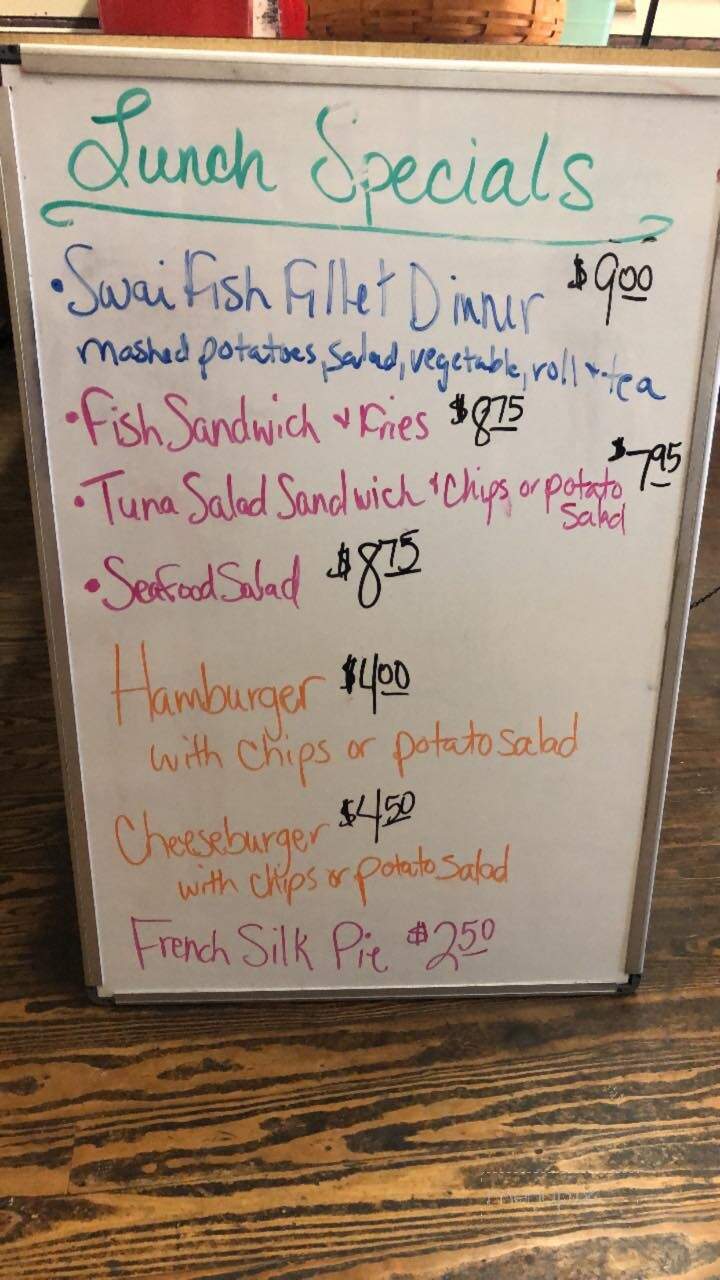 Lunch Specials
• Swai Fish Fillet Dinner $9.00
mashed potatoes, salad, vegetable, roll & tea
• Fish Sandwich & Fries $8.75
• Tuna Salad Sandwich & Chips or potato $7.95
Salad
• Seafood Salad $8.75
Hamburger $4.00
with chips or potato salad
Cheeseburger $4.50
with chips or potato salad
French Silk Pie $2.50